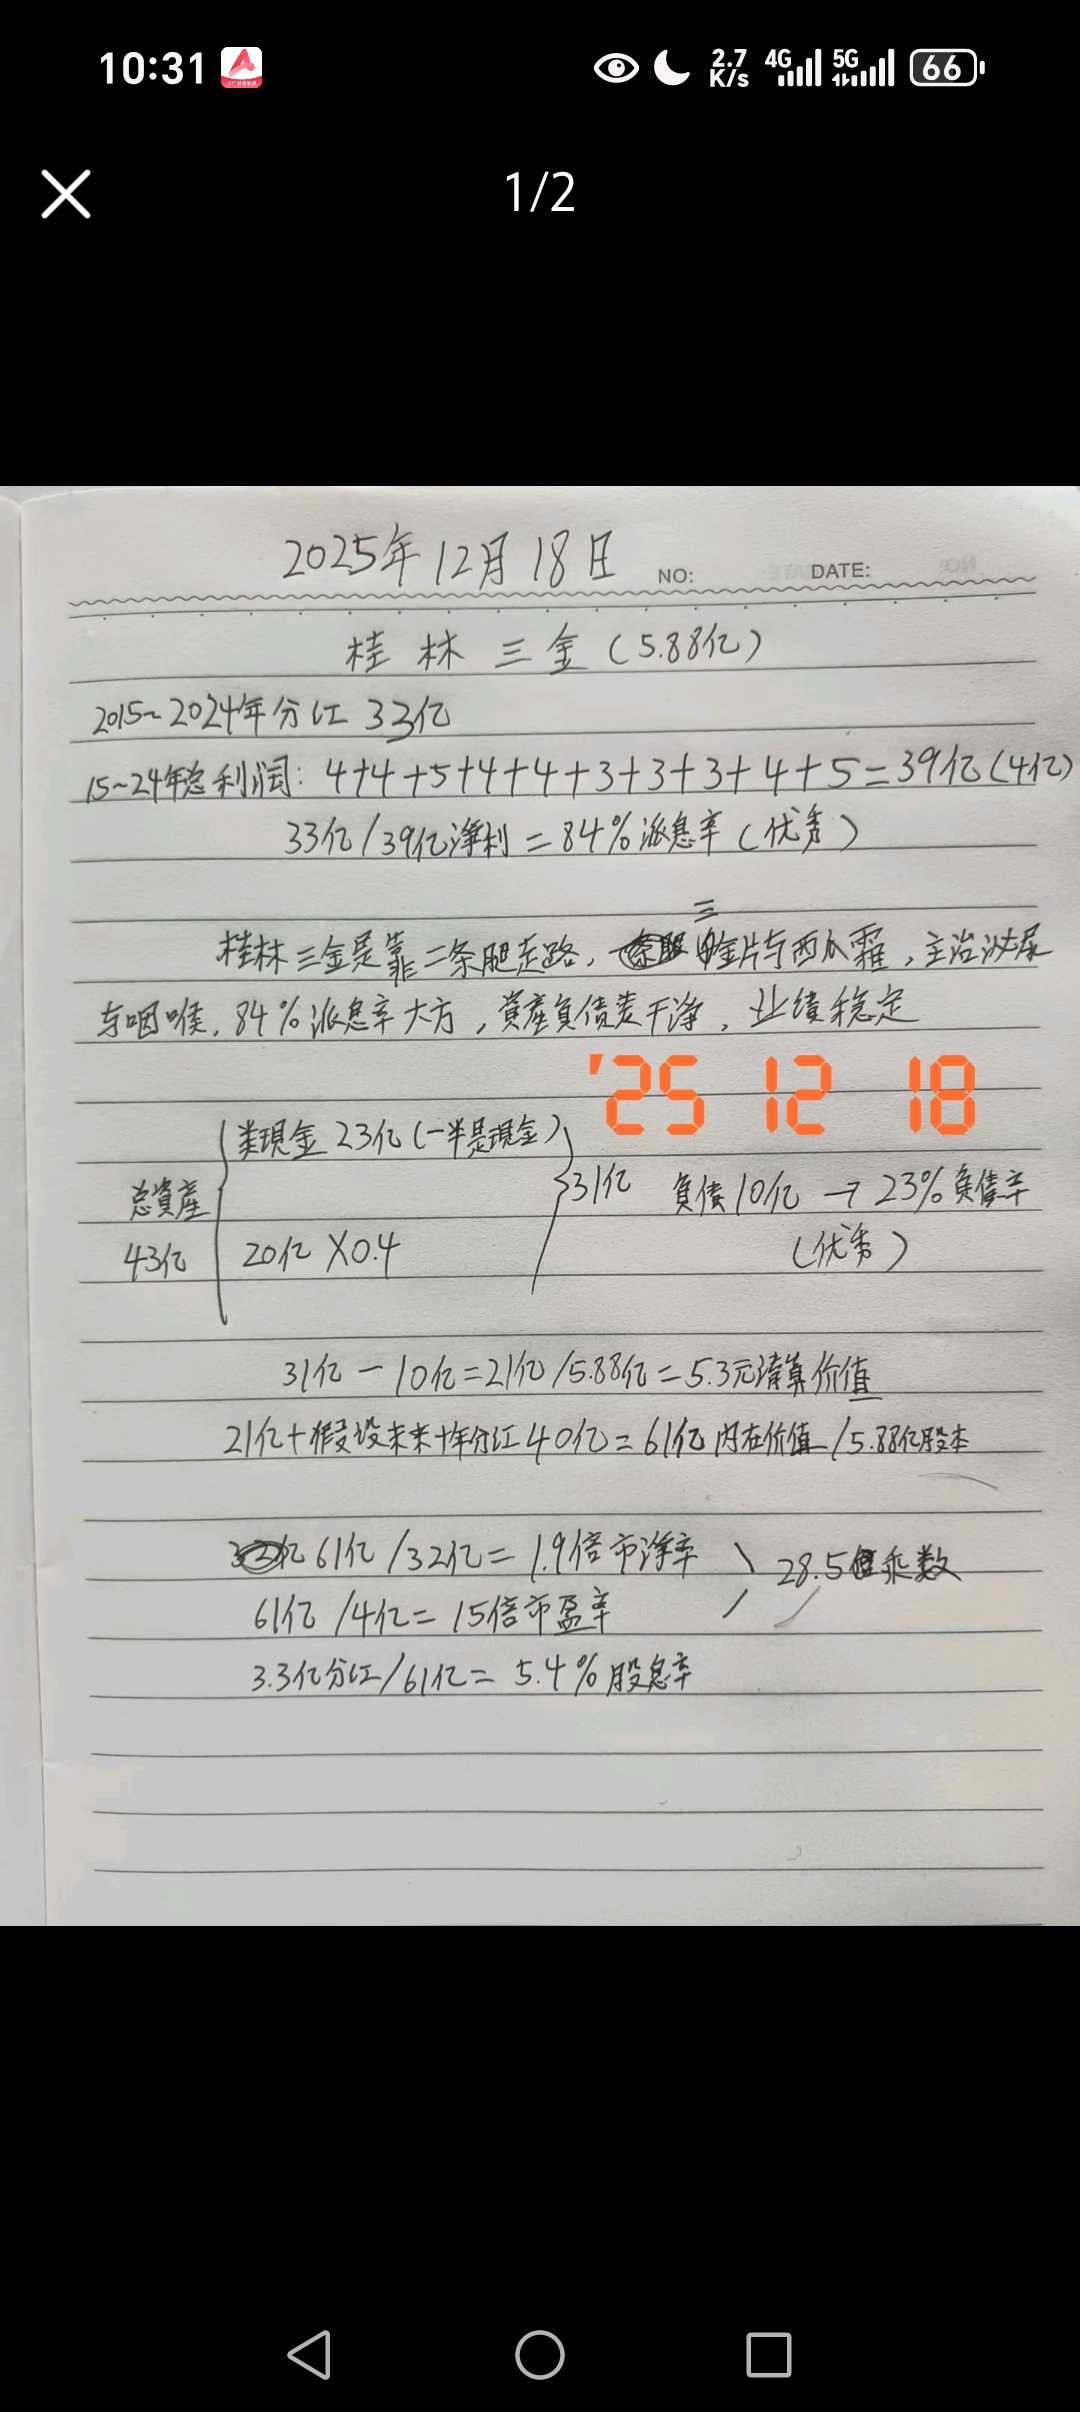 10:31
2.7 K/s 4G 5G 66
1/2
2025年12月18日 NO: DATE:
桂林三金(5.88亿)
2015~2024年分红33亿
15~24年总利润:4+4+5+4+4+3+3+3+4+5=39亿(4亿)
33亿/39亿净利=84%派息率(优秀)
桂林三金是靠二条腿走路,三金片与西瓜霜,主治泌尿
与咽喉,84%派息率大方,資產負債表干净,业绩稳定
'25 12 18
类現金23亿(一半是現金)
总資產 31亿 負債10亿→23%負債率
43亿 20亿×0.4 (优秀)
31亿-10亿=21亿/5.88亿=5.3元清算价值
21亿+假设未来十年分红40亿=61亿内在价值/5.88亿股本
61亿/32亿=1.9倍市净率
28.5倍乘数
61亿/4亿=15倍市盈率
3.3亿分红/61亿=5.4%股息率